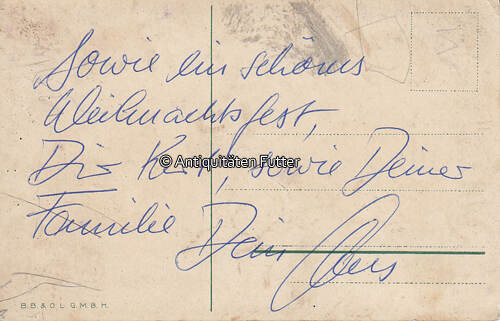 Sowie ein schönes
Weihnachtsfest,
Dir Kurt, sowie Deiner
© Antiquitäten Futter
Familie Dein
B.B. & O.L. G.M.B.H.